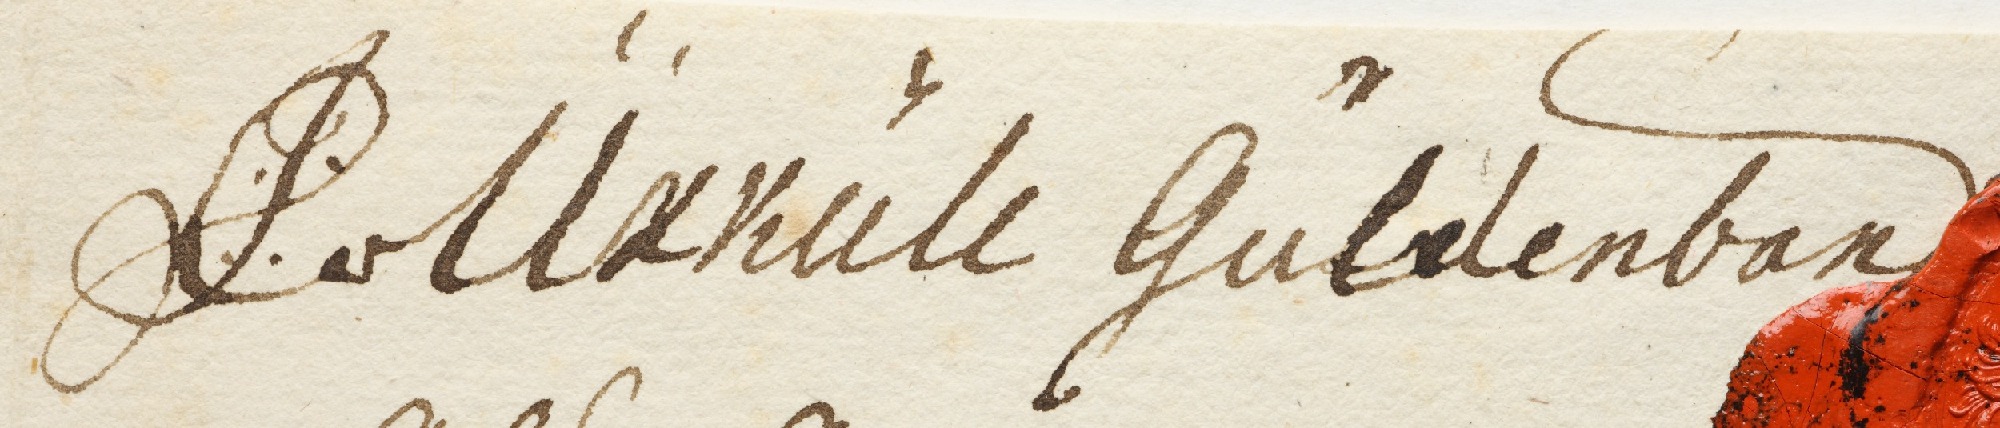 v Üxküll Güldenban